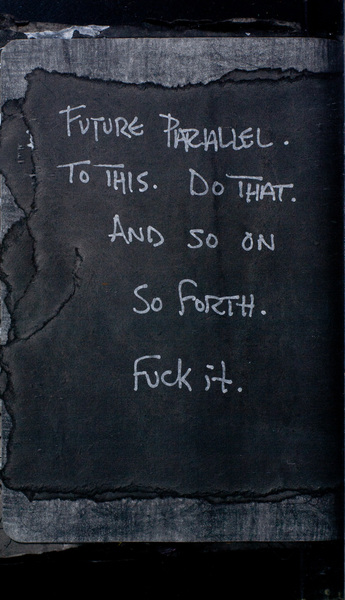 FUTURE PARALLEL.
TO THIS. DO THAT.
AND SO ON
SO FORTH.
Fuck it.